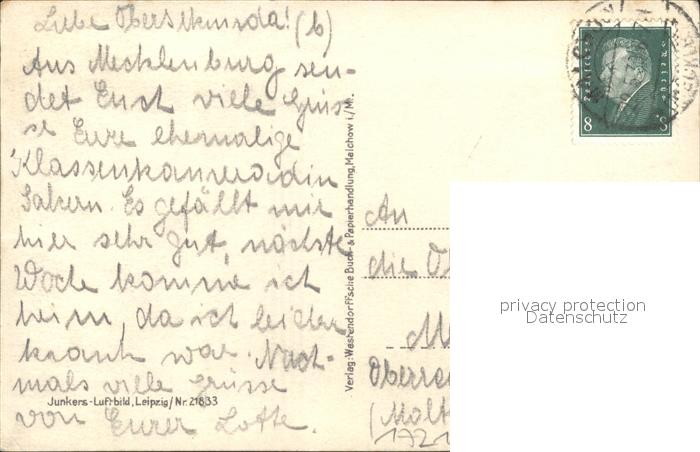 Liebe Obersekunda! (b)
Aus Mecklenburg sen-
det Euch viele Grüs-
se Eure ehemalige
Klassenkameradin
Es gefällt mir
hier sehr gut, nächste
Woche komme ich
heim, da ich leider
krank war. Noch-
mals viele Grüsse
von Eurer Lotte.
Junkers-Luftbild, Leipzig/Nr. 21833
Verlag: Wastendorff'sche Buch- & Papierhandlung, Malchow i/M.
8 8
An
die O
M
Oberre
(Molt
1721
privacy protection
Datenschutz